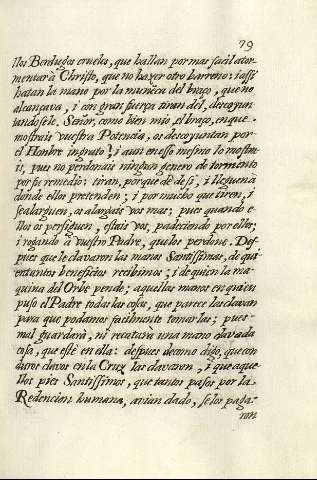 79
llos Berdugos crueles, que hallan por mas facil ator-
mentar à Christo, que no hazer otro barreno: i assi
hatan la mano por la muñeca del braço, que no
alcançava, i con gran fuerça tiran del, descoyun
tandosele. Señor, como bien mio, el braço, en que
mostrais vuestra Potencia, os descoyuntan por
el Honbre ingrato? i aun en esso mesmo lo mostra-
is, pues no perdonais ningun genero de tormento
por su remedio: tiran, porque de de si, i llegue à
donde ellos pretenden; i por mucho que tiren, i
se alarguen, os alargais vos mas; pues quando e-
llos os persiguen, estais vos, padeciendo por ellos;
i rogando à vuestro Padre, que los perdone. Des-
pues que le clavaron las manos Santissimas, de qui
en tantos beneficios recibimos; i de quien la ma-
quina del Orbe pende; aquellas manos en quien
puso el Padre todas las cosas, que parece las clavan
para que podamos facilmente tomarlas; pues
mal guardarà, ni recatara una mano clavada
cosa, que estè en ella: despues decomo digo, que con
duros clavos en la Cruz las clavaron, i que aque-
llos pies Santissimos, que tantos pasos por la
Redencion humana, avian dado, se los paga-
ron